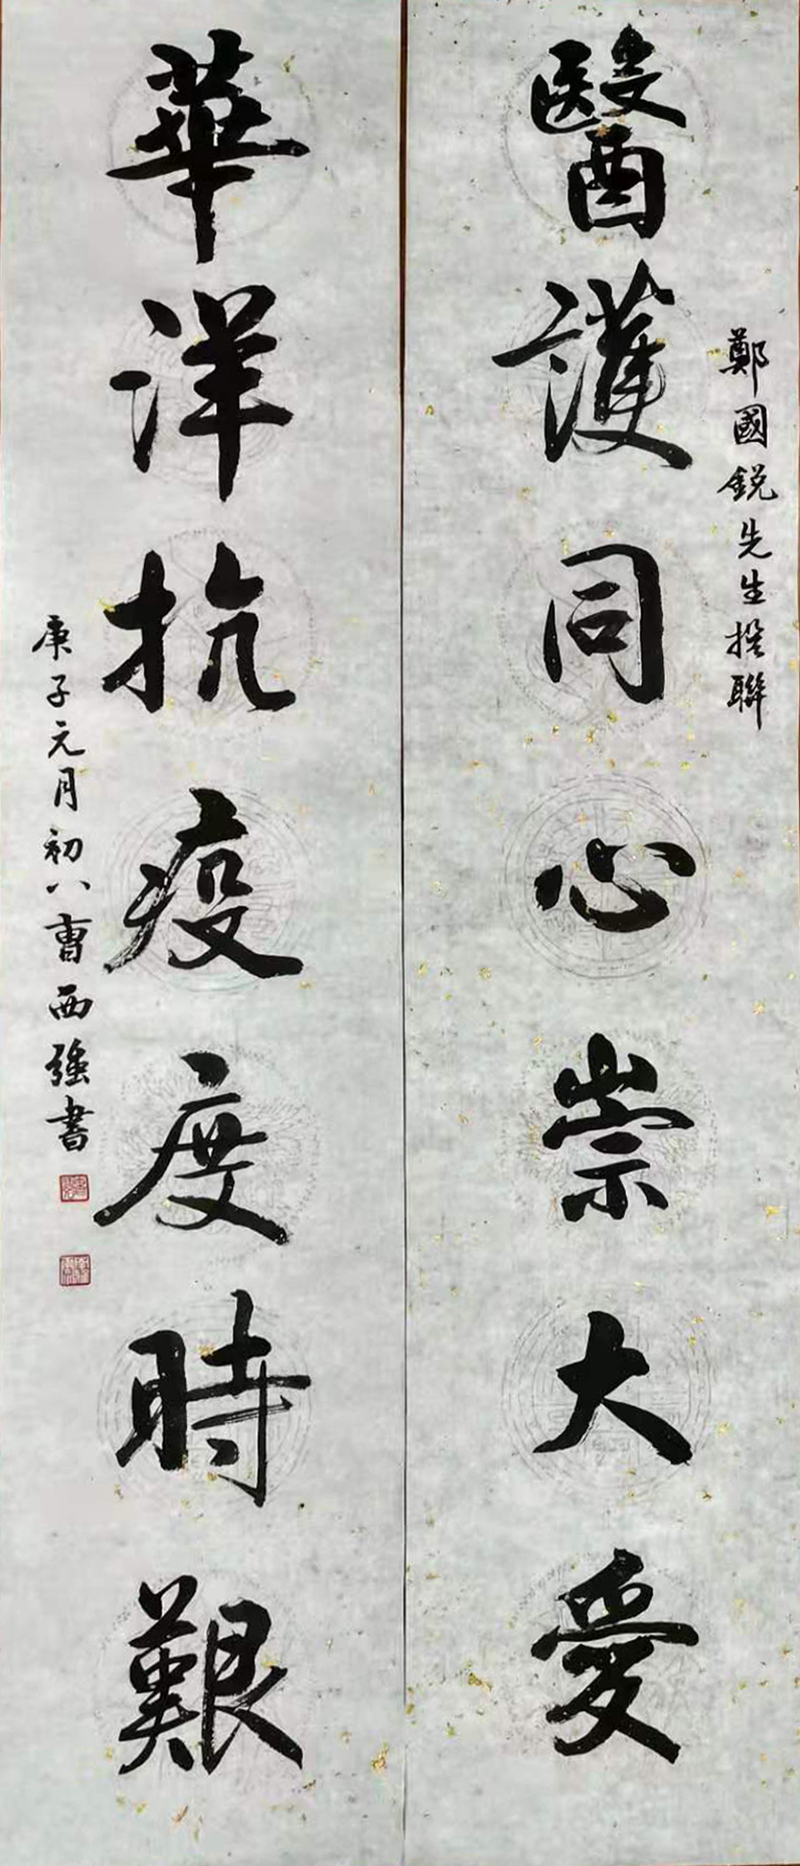 鄭國鋭先生撰聯
醫護同心崇大愛
華洋抗疫度時艱
庚子元月初八曹西強書